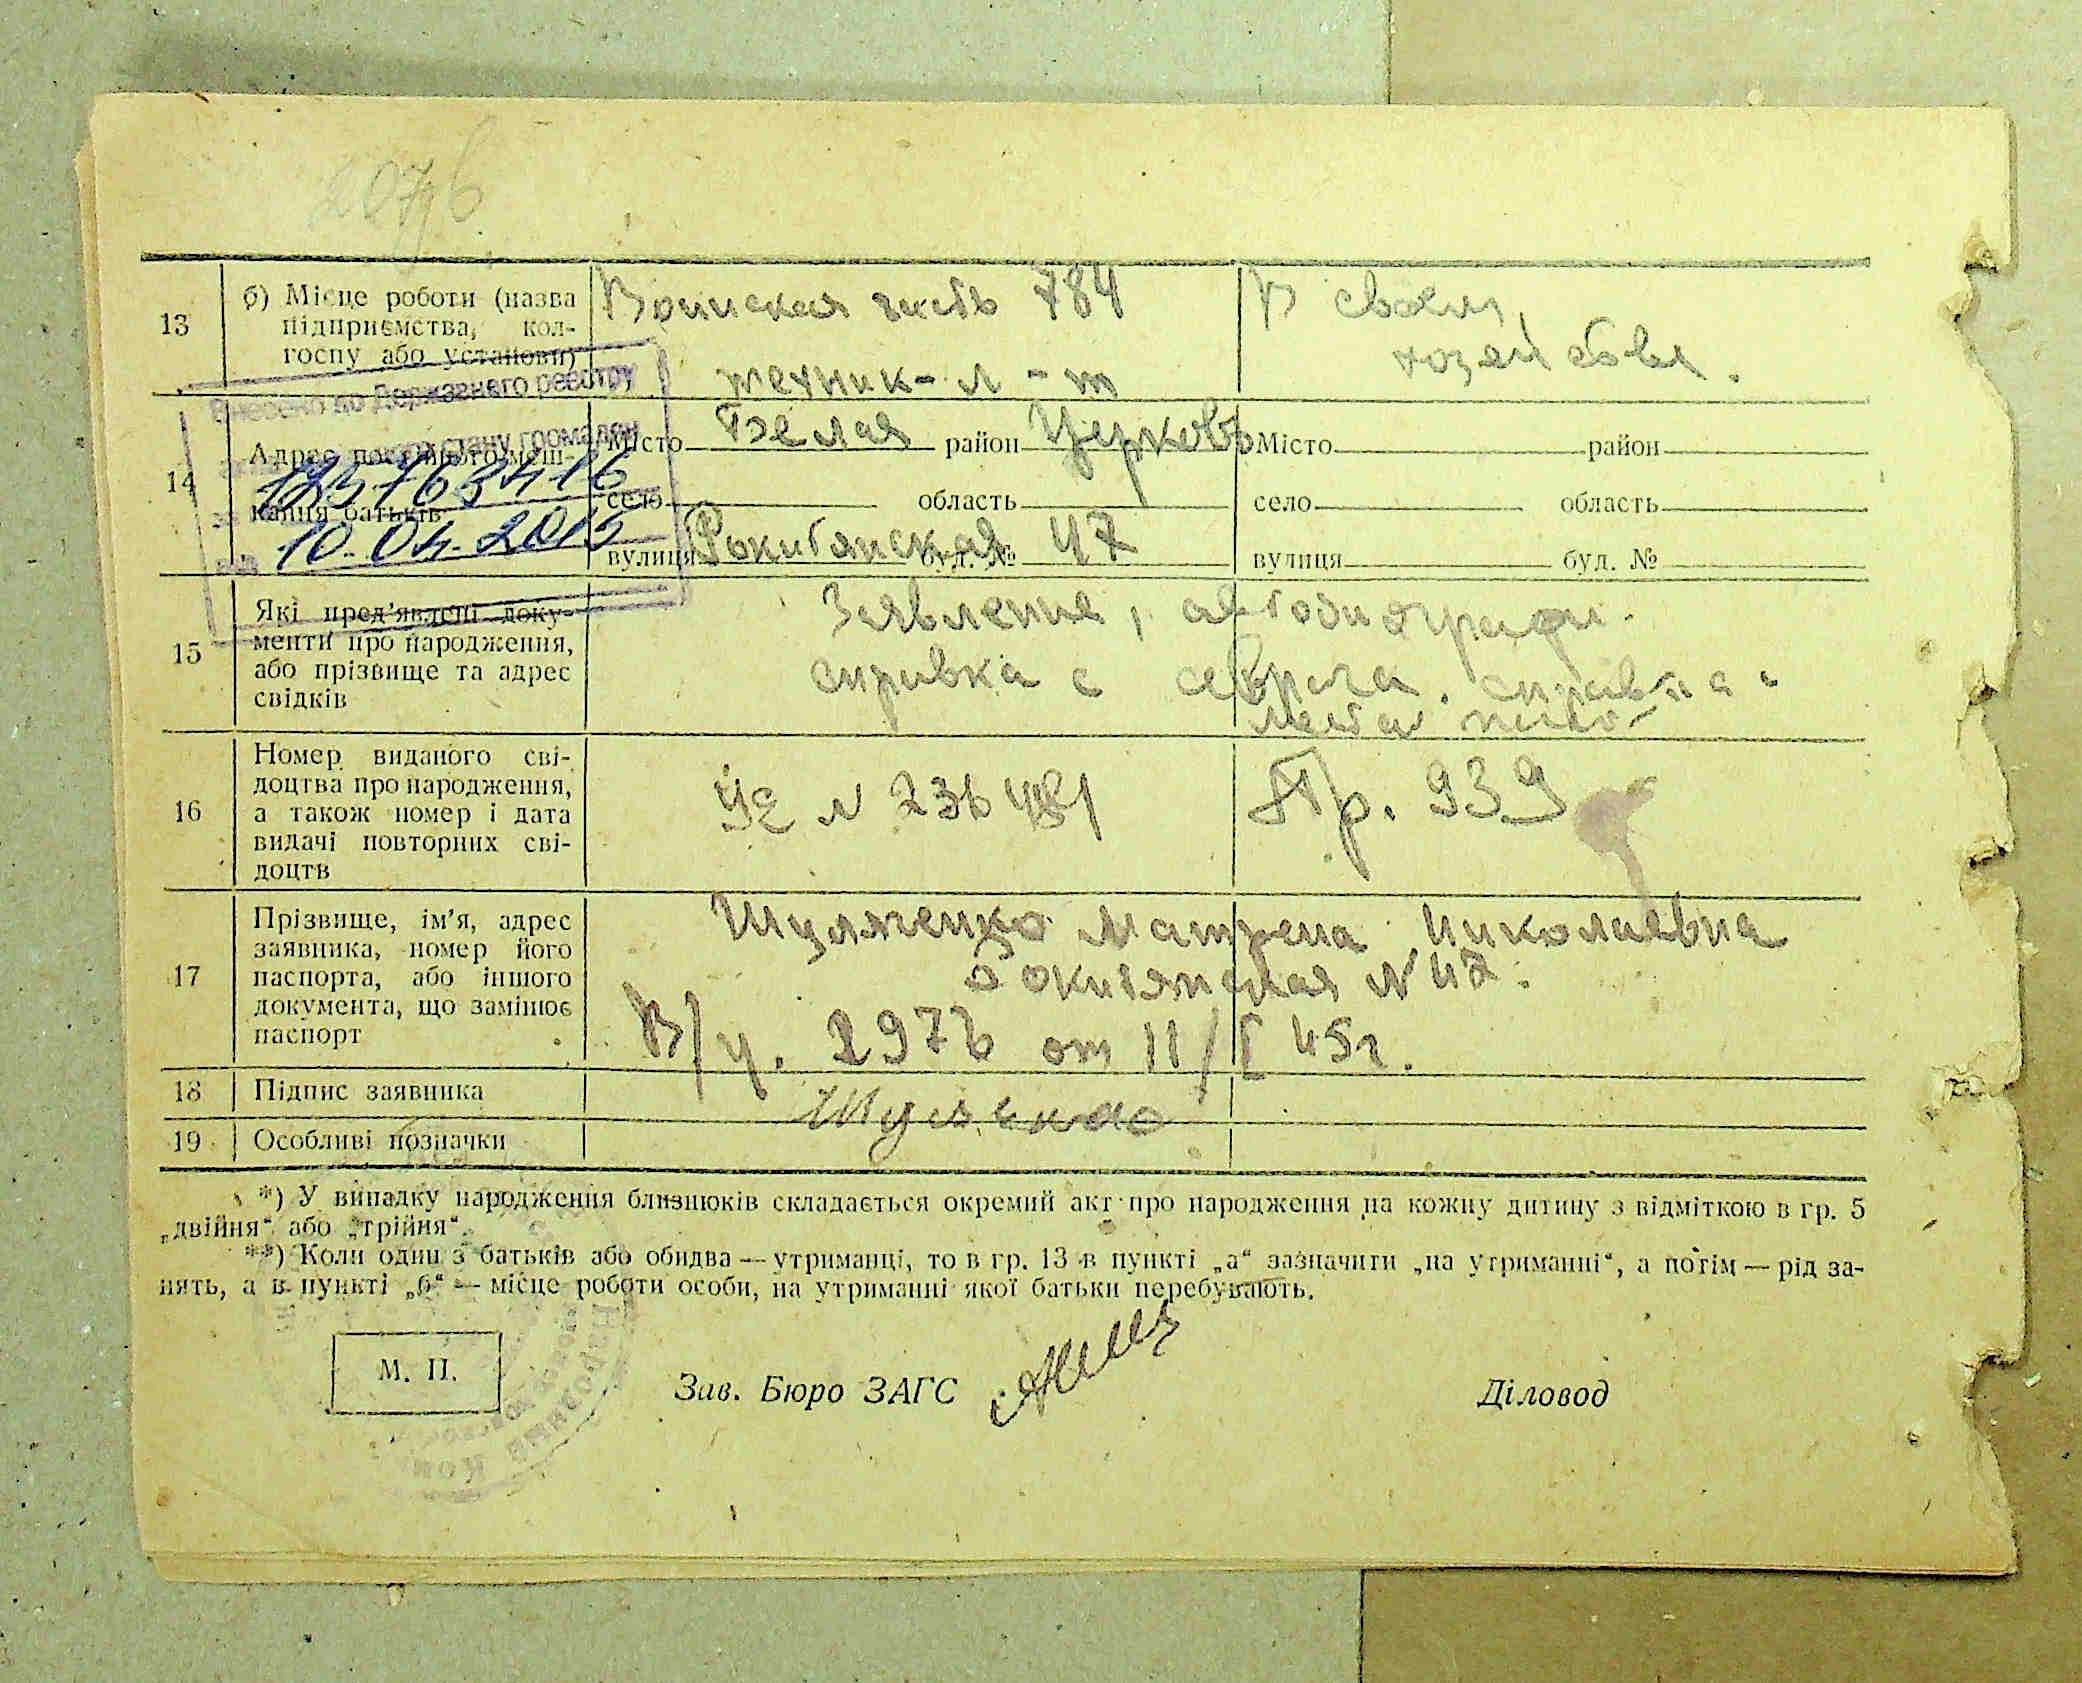 13
б) Місце роботи (назва
підприємства, кол-
госпу або установи)
Воинская часть 784
техник-л-т
В своем
хозяйстве.
Внесено до Державного реєстру
стану громадян
10.04.2015
14
Адрес постійного меш-
кання батьків
Місто Белая район Церковь
село область
вулиця Рокитянская буд. № 47
Місто район
село область
вулиця буд. №
15
Які пред'явлені доку-
менти про народження,
або прізвище та адрес
свідків
Заявление, автобиографи.
справка с справка с
места
16
Номер виданого сві-
доцтва про народження,
а також номер і дата
видачі повторних сві-
доцтв
№ 236481
Пр. 939
17
Прізвище, ім'я, адрес
заявника, номер його
паспорта, або іншого
документа, що замінює
паспорт
Шуляченко Матрена Николаевна
Рокитянская № 47.
В/у. 2976 от 11/I 45г.
18
Підпис заявника
19
Особливі позначки
*) У випадку народження близнюків складається окремий акт про народження на кожну дитину з відміткою в гр. 5
„двійня“ або „трійня“.
**) Коли один з батьків або обидва — утриманці, то в гр. 13 в пункті „а“ зазначити „на утриманні“, а потім — рід за-
нять, а в пункті „б“ — місце роботи особи, на утриманні якої батьки перебувають.
М. П.
Зав. Бюро ЗАГС
Діловод